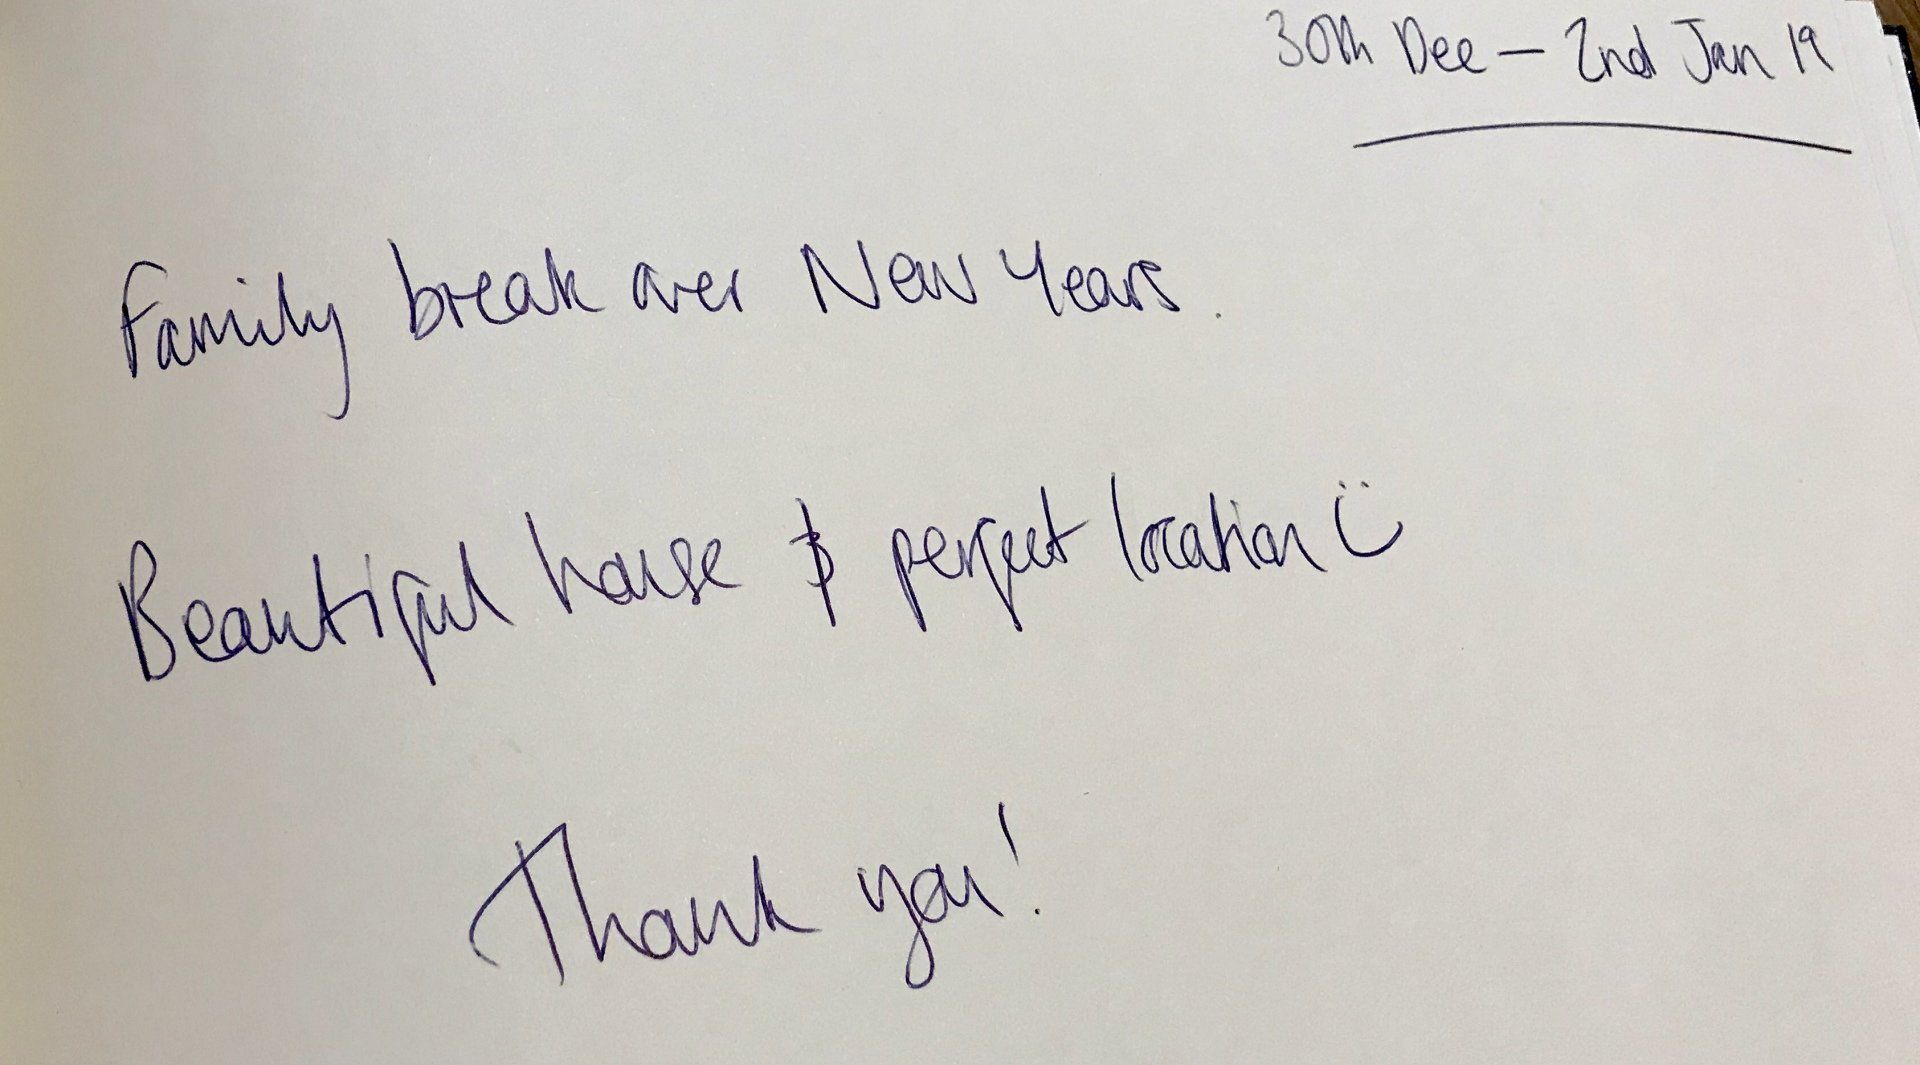 30th Dec – 2nd Jan 19
Family break over New Years.
Beautiful house & perfect location :)
Thank you!